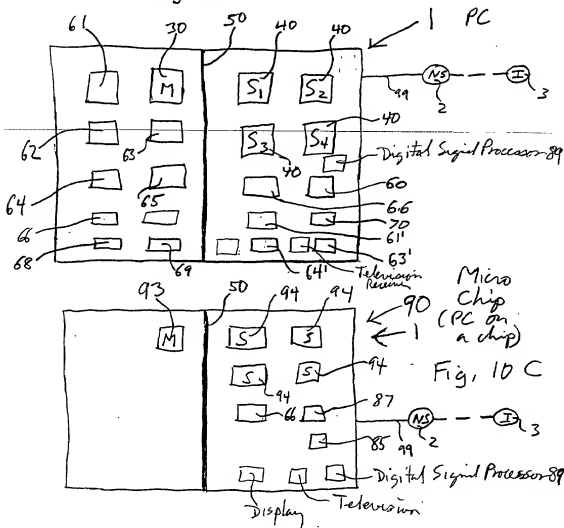 61 30 50 40 40 1 PC
M S1 S2 NS I
99 2 3
40
62 63 S3 S4
40 Digital Signal Processor 89
64 65 60
66 70
66 61'
68 69 64' Television Receiver 63'
93 50 94 94 90 Micro Chip (PC on a chip)
M S S 1
S S 94
94 Fig. 10 C
66 87 NS I
85 99 2 3
Digital Signal Processor 89
Display Television